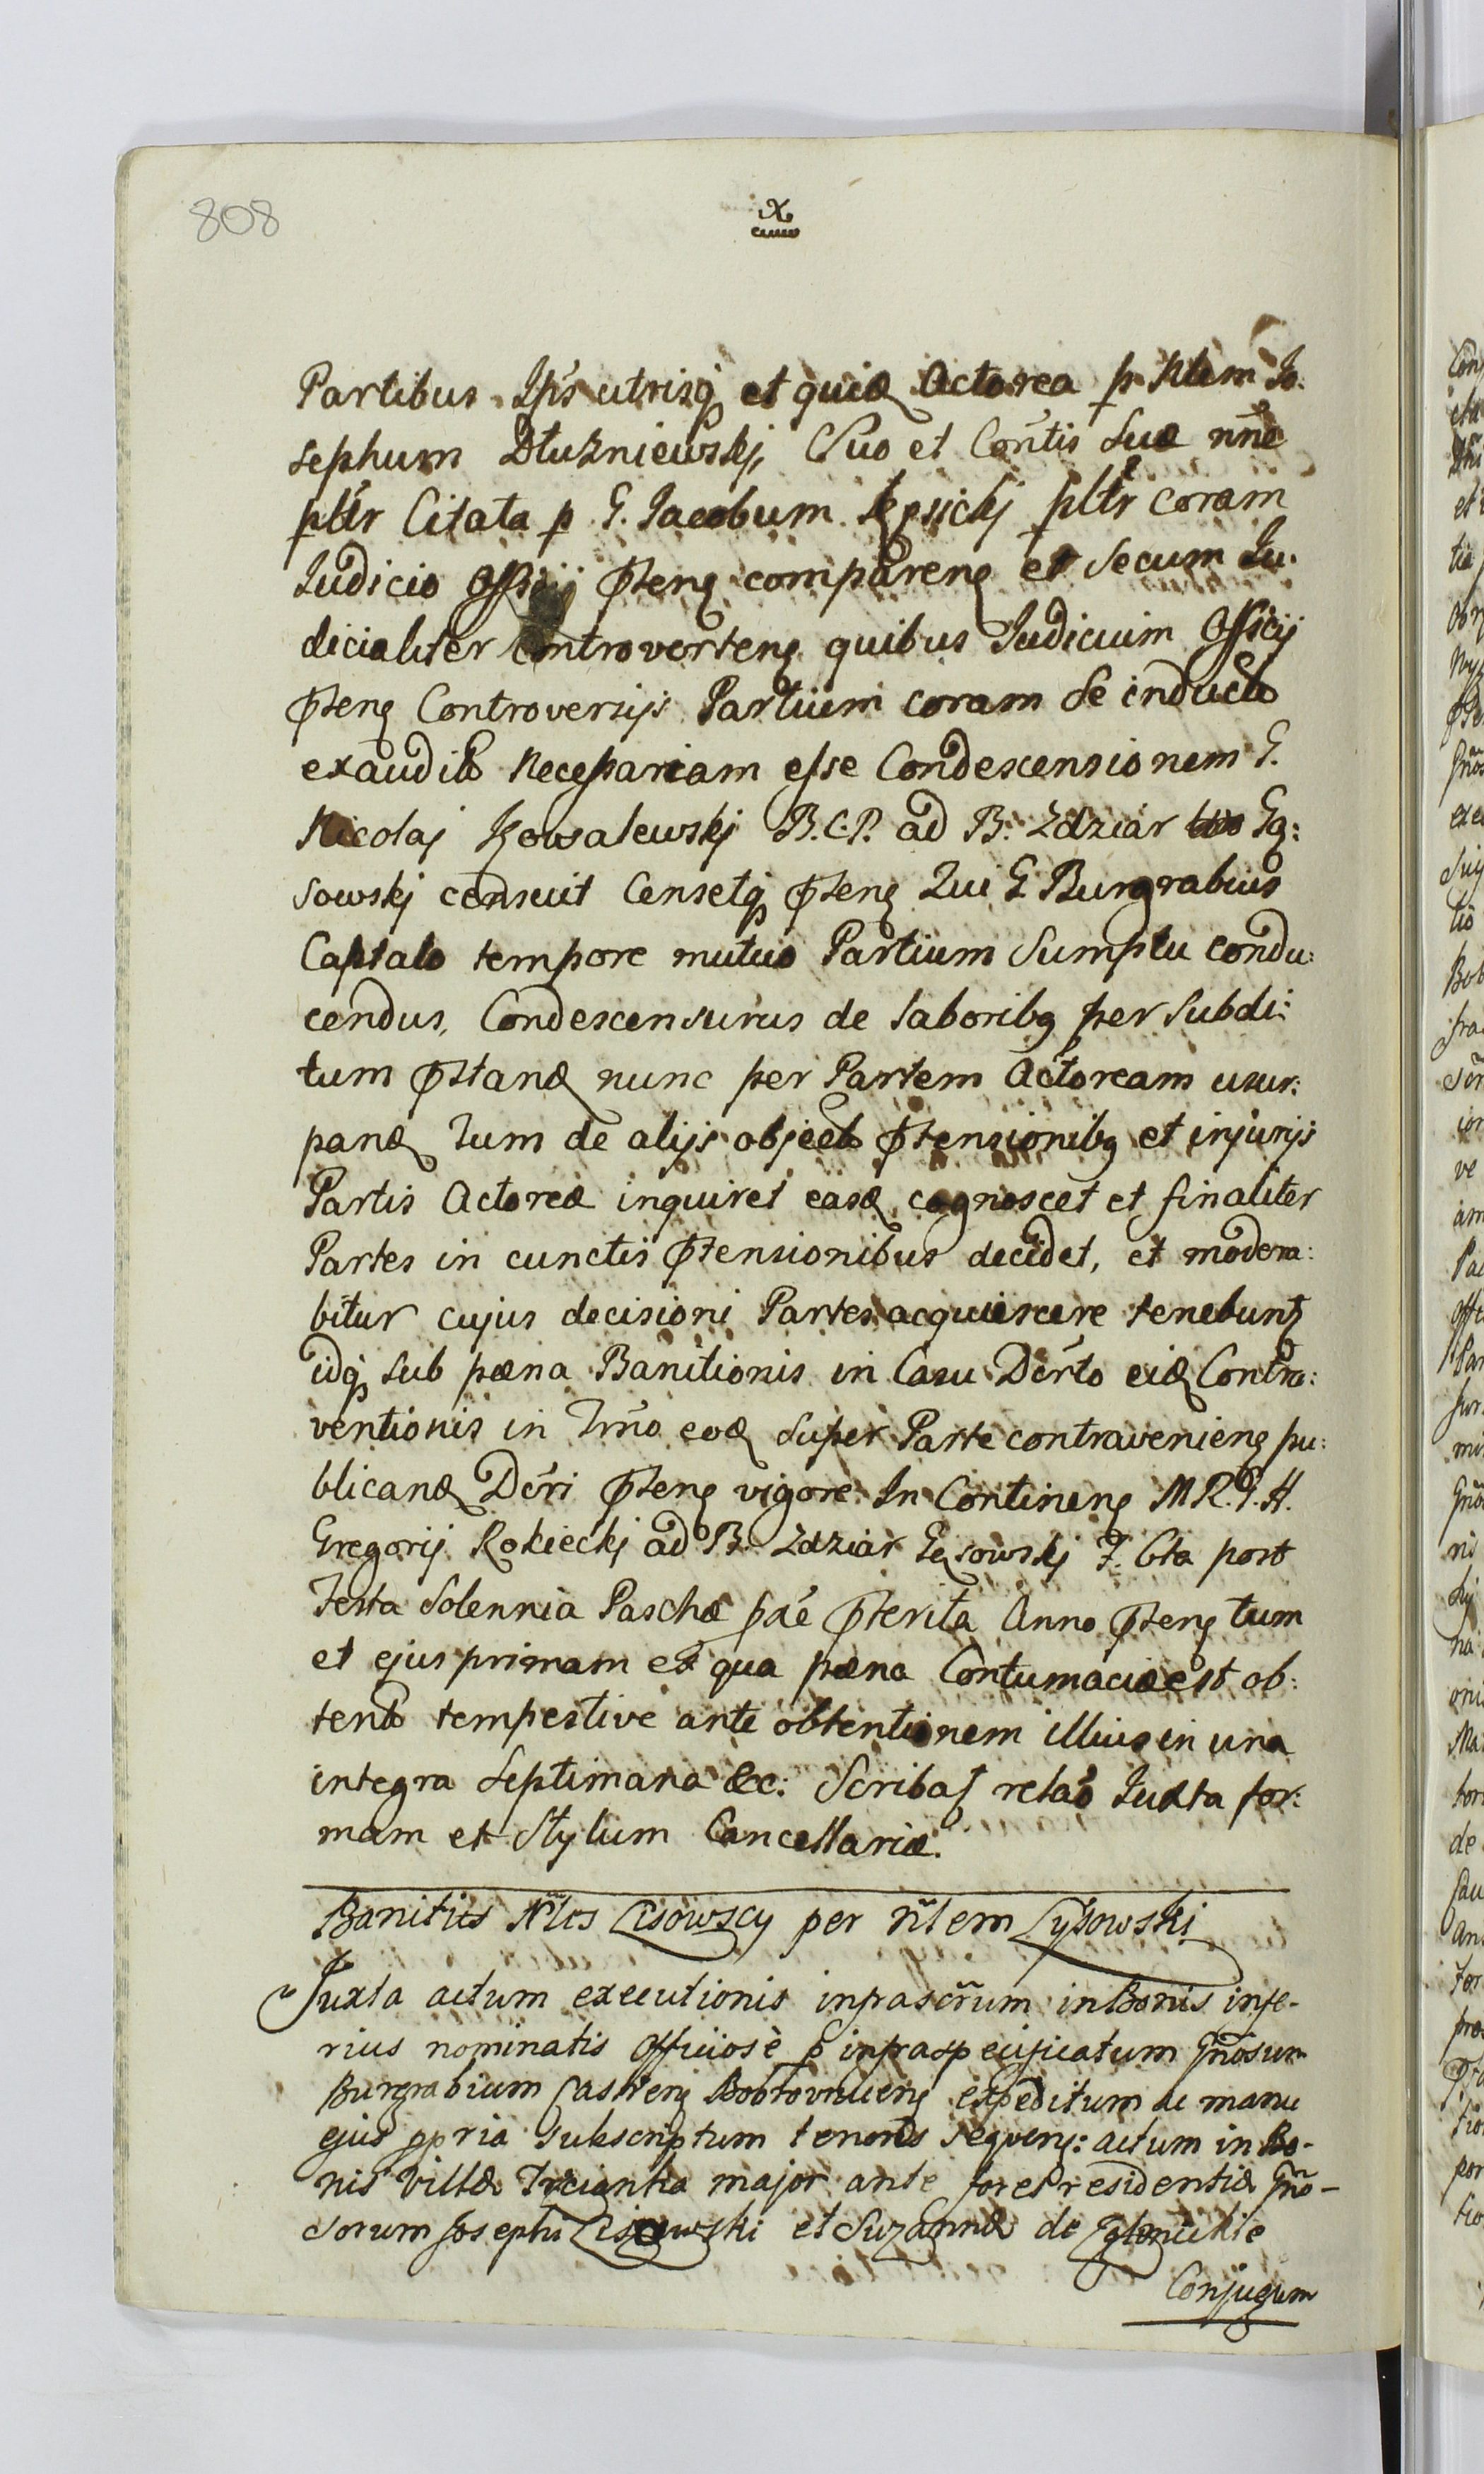 808
X
Partibus Ip̄s utrisq et quid Actorea p Nlem Jo:
sephum Dłużniewskj, Suo et Con̄tis Suæ nn̄e
pl̄tr Citata p G. Jacobum Kęsickj pl̄tr coram
Judicio Officij p̄teng compareng et secum Ju:
dicialiter Controverteng quibus Judicium Officij
p̄teng Controversijs Partium coram Se inducto
exaudito Necessariam esse Condescensionem G.
Nicolaj Kowalewskj B.C.P. ad B. Zdziar Gą:
sowskj censuit Censetq p̄teng Qui G. Burgrabius
Captato tempore mutuo Partium Sumptu condu:
cendus, Condescensurus de laboribg per Subdi:
tum p̄stand nunc per Partem Actoream usur:
pand Tum de alijs object p̄tensionibg et injurijs
Partis Actoreæ inquiret easd cognoscet et finaliter
Partes in cunctis p̄tensionibus decidet, et modera:
bitur cujus decisioni Partes acquiescere tenebunt
idq sub pæna Banitionis in Casu Decr̄to eid Contra:
ventionis in Trn̄o eod super Parte contravenieng pu:
blicand Decr̄i p̄teng vigore. In Contineng M.R.G.H.
Gregorij Rokieckj ad B. Zdziar Gąsowskj F. 6ta post
Festa Solennia Paschæ p̄æ p̄terita Anno p̄teng tum
et ejus primam ex qua pæna Contumaciæ est ob:
tento tempestive ante obtentionem illius in una
integra Septimana &c: Scribat relatō Juxta for:
mam et Stylum Cancellariæ.
Banitus Nl̄es Lisowscy per Nl̄em Lysowski
Juxta actum executionis infrascr̄um in Bonis infe-
rius nominatis officiosè p infraspecificatum Gn̄osum
Burgrabium Castreng Bobrovniceng expeditum ac manu
ejus ppria subscriptum tenoris sequeng: actum in Bo-
nis Villæ Trcianka major ante fores Residentiæ Gn̄o-
sorum Josephi Lisowski et Suzannæ de
Conjugum